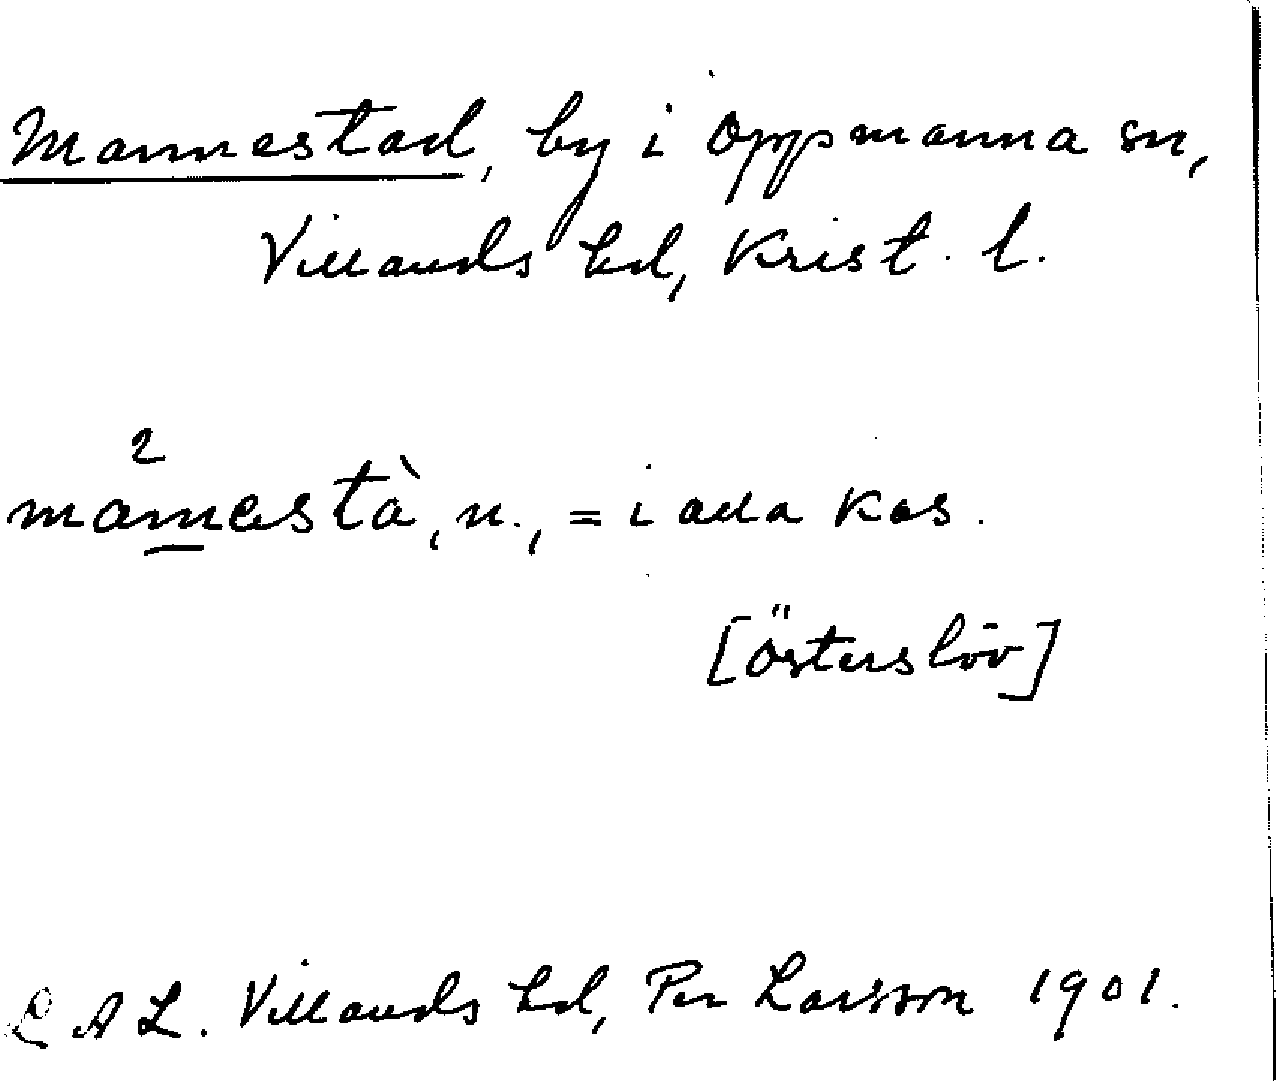 Mannestad, by i Oppmanna sn,
Villands hd, Krist. l.
2
mannestà, n., = i alla kas.
[Österslöv]
L A L. Villands hd, Per Larsson 1901.